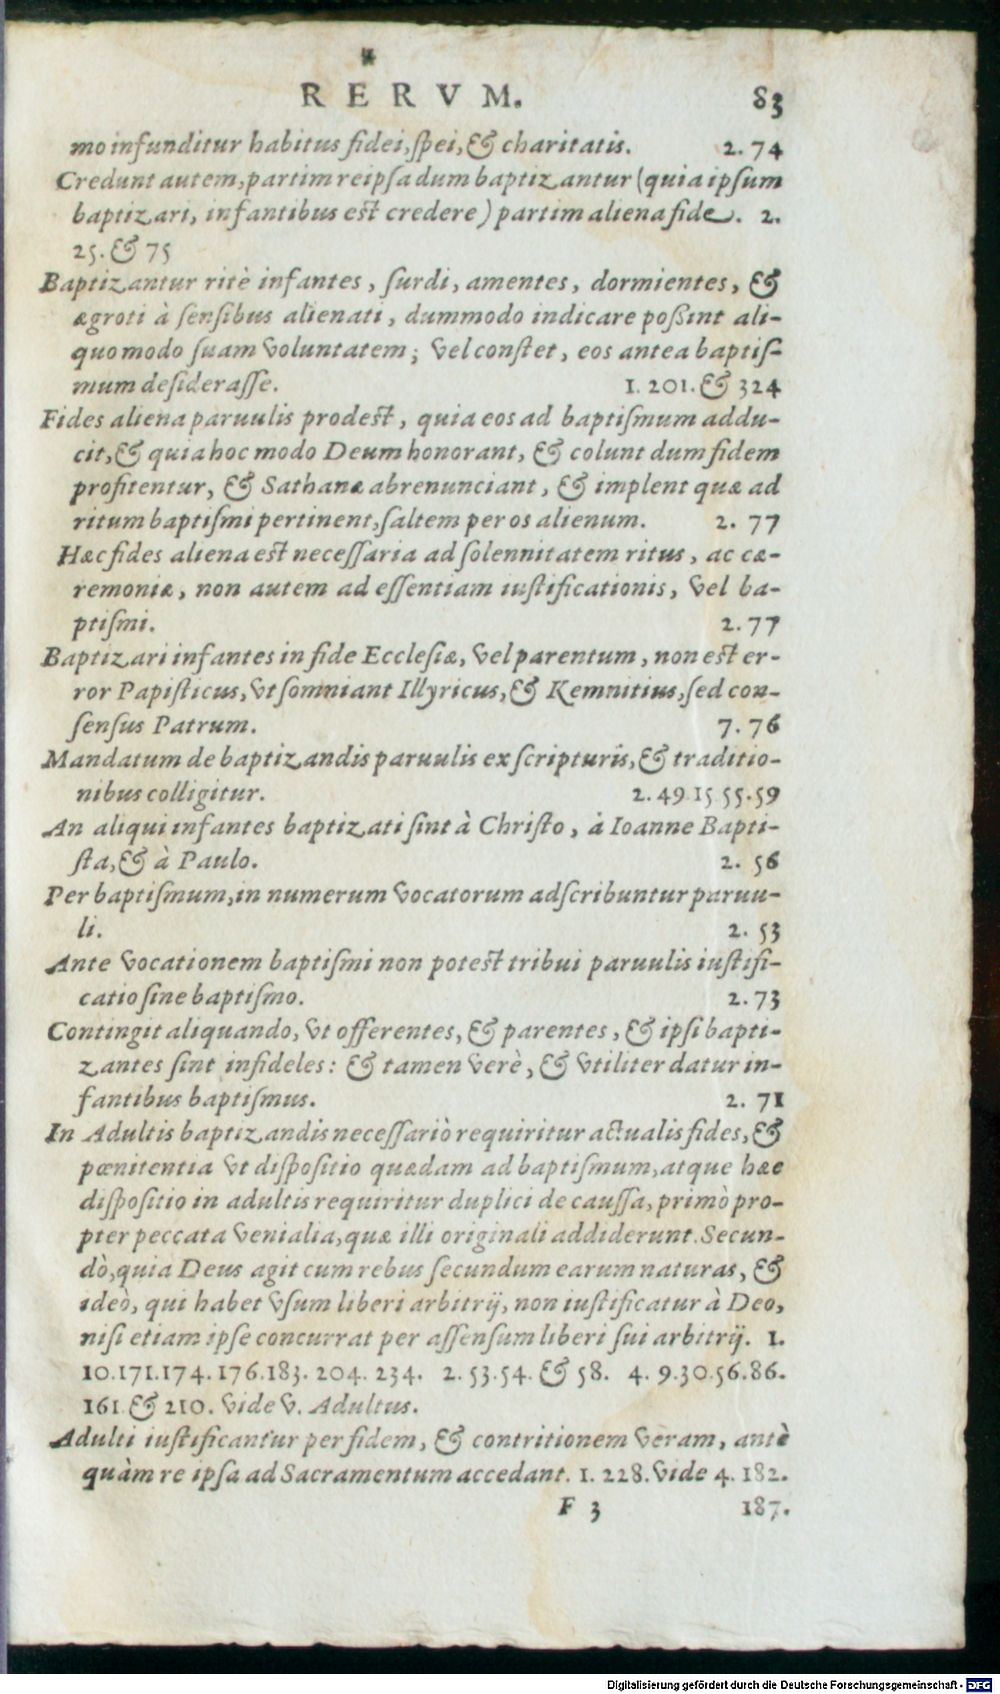 RERVM. 83
mo infunditur habitus fidei, spei, & charitatis. 2. 74
Credunt autem, partim reipsa dum baptizantur (quia ipsum
baptizari, infantibus est credere) partim aliena fide. 2.
25. & 75
Baptizantur ritè infantes, surdi, amentes, dormientes, &
ægroti à sensibus alienati, dummodo indicare poßint ali-
quo modo suam voluntatem; vel constet, eos antea baptis-
mum desiderasse. 1. 201. & 324
Fides aliena paruulis prodest, quia eos ad baptismum addu-
cit, & quia hoc modo Deum honorant, & colunt dum fidem
profitentur, & Sathanæ abrenunciant, & implent quæ ad
ritum baptismi pertinent, saltem per os alienum. 2. 77
Hæc fides aliena est necessaria ad solennitatem ritus, ac cæ-
remoniæ, non autem ad essentiam iustificationis, vel ba-
ptismi. 2. 77
Baptizari infantes in fide Ecclesiæ, vel parentum, non est er-
ror Papisticus, vt somniant Illyricus, & Kemnitius, sed con-
sensus Patrum. 7. 76
Mandatum de baptizandis paruulis ex scripturis, & traditio-
nibus colligitur. 2. 49. 15. 55. 59
An aliqui infantes baptizati sint à Christo, à Ioanne Bapti-
sta, & à Paulo. 2. 56
Per baptismum, in numerum vocatorum adscribuntur paruu-
li. 2. 53
Ante vocationem baptismi non potest tribui paruulis iustifi-
catio sine baptismo. 2. 73
Contingit aliquando, vt offerentes, & parentes, & ipsi bapti-
zantes sint infideles: & tamen verè, & vtiliter datur in-
fantibus baptismus. 2. 71
In Adultis baptizandis necessariò requiritur actualis fides, &
pœnitentia vt dispositio quædam ad baptismum, atque hæc
dispositio in adultis requiritur duplici de caussa, primò pro-
pter peccata venialia, quæ illi originali addiderunt. Secun-
dò, quia Deus agit cum rebus secundum earum naturas, &
ideò, qui habet vsum liberi arbitrij, non iustificatur à Deo,
nisi etiam ipse concurrat per assensum liberi sui arbitrij. 1.
10. 171. 174. 176. 183. 204. 234. 2. 53. 54. & 58. 4. 9. 30. 56. 86.
161. & 210. vide V. Adultus.
Adulti iustificantur per fidem, & contritionem veram, antè
quàm re ipsa ad Sacramentum accedant. 1. 228. vide 4. 182.
F 3 187.
Digitalisierung gefördert durch die Deutsche Forschungsgemeinschaft - DFG